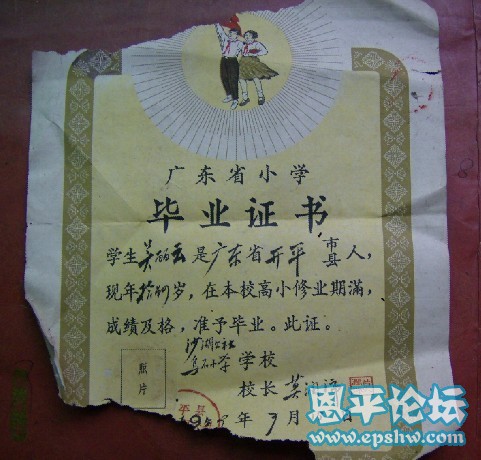 广东省小学
毕业证书
学生吴 云是广东省开平市县人，
现年拾 岁，在本校高小修业期满，
成绩及格，准予毕业。此证。
沙湖公社
石小学学校
校长
照片
年 7 月
恩平论坛
www.epshw.com